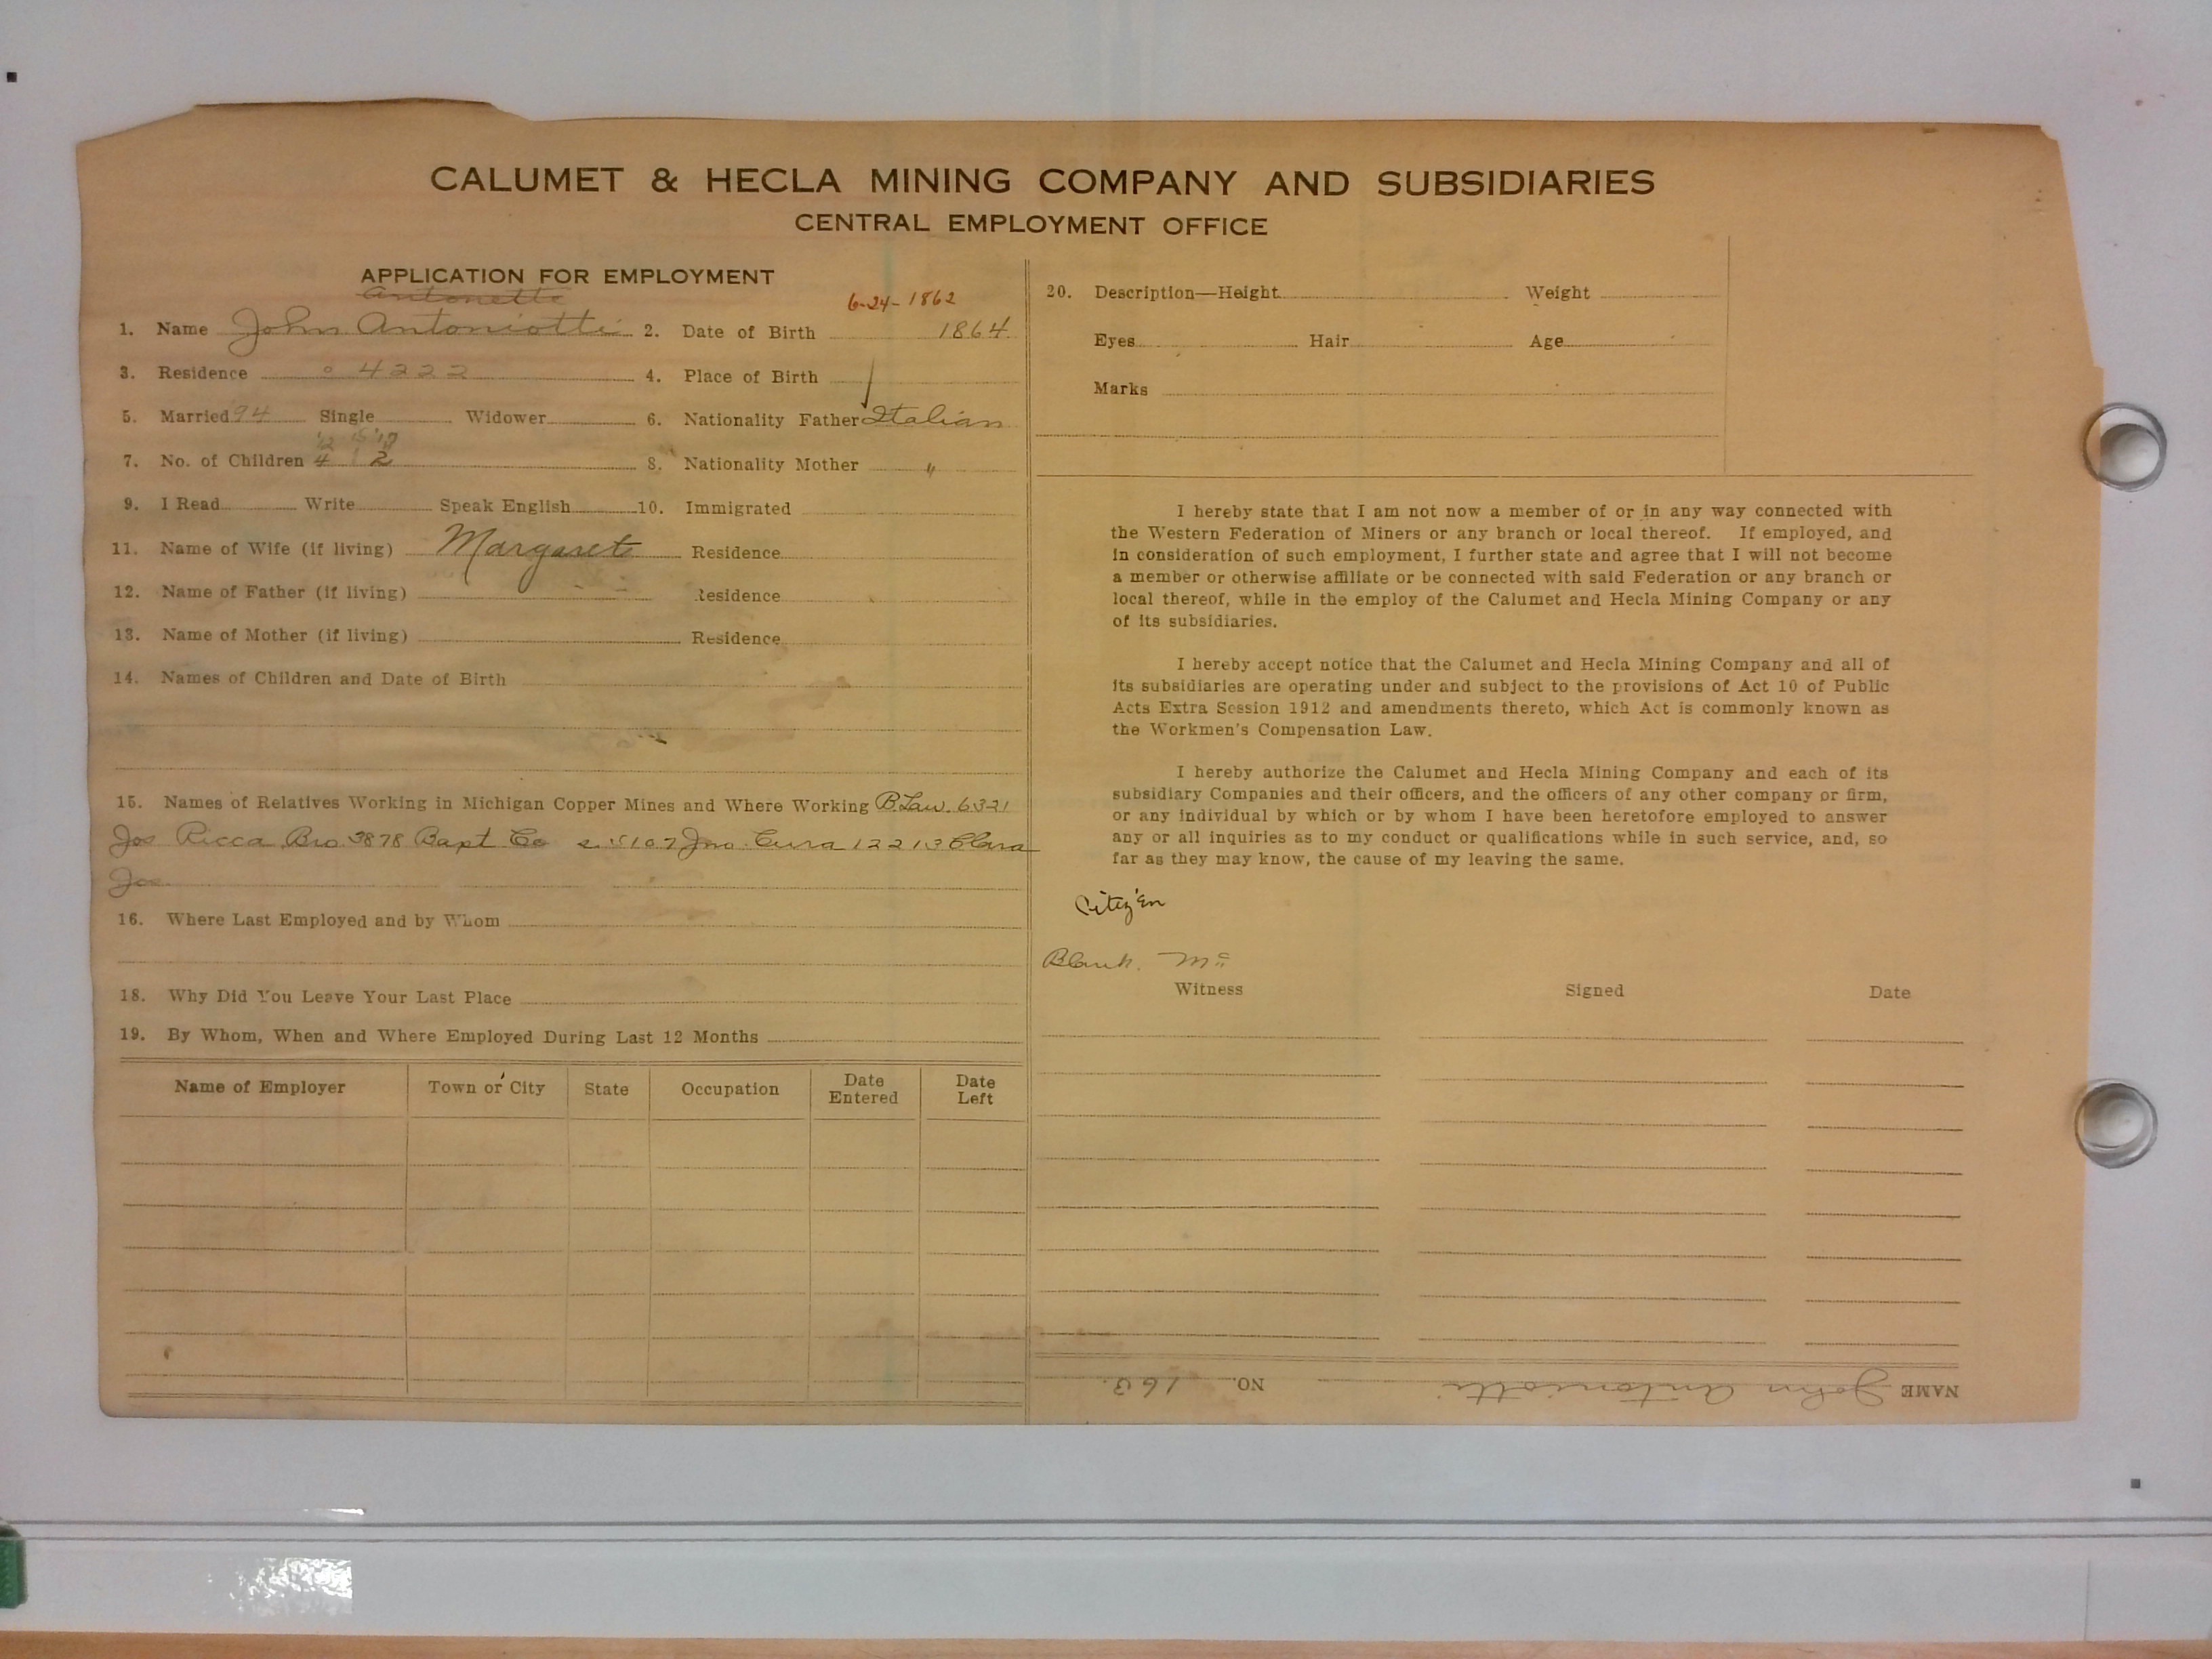 CALUMET & HECLA MINING COMPANY AND SUBSIDIARIES
CENTRAL EMPLOYMENT OFFICE
APPLICATION FOR EMPLOYMENT
Antonette
6-24-1862
1. Name John Antoniotti 2. Date of Birth 1864
3. Residence 4222 4. Place of Birth
5. Married 94 Single Widower 6. Nationality Father Italian
7. No. of Children 4 2 8. Nationality Mother "
9. I Read Write Speak English 10. Immigrated
11. Name of Wife (if living) Margaret Residence
12. Name of Father (if living) Residence
13. Name of Mother (if living) Residence
14. Names of Children and Date of Birth
15. Names of Relatives Working in Michigan Copper Mines and Where Working B. Law. 6321
Jos Ricca Bro 3878 Bapt Jno. Cura 12213 Clara
Jos
16. Where Last Employed and by Whom
18. Why Did You Leave Your Last Place
19. By Whom, When and Where Employed During Last 12 Months
Name of Employer Town or City State Occupation Date Entered Date Left
20. Description—Height Weight
Eyes Hair Age
Marks
I hereby state that I am not now a member of or in any way connected with
the Western Federation of Miners or any branch or local thereof. If employed, and
in consideration of such employment, I further state and agree that I will not become
a member or otherwise affiliate or be connected with said Federation or any branch or
local thereof, while in the employ of the Calumet and Hecla Mining Company or any
of its subsidiaries.
I hereby accept notice that the Calumet and Hecla Mining Company and all of
its subsidiaries are operating under and subject to the provisions of Act 10 of Public
Acts Extra Session 1912 and amendments thereto, which Act is commonly known as
the Workmen's Compensation Law.
I hereby authorize the Calumet and Hecla Mining Company and each of its
subsidiary Companies and their officers, and the officers of any other company or firm,
or any individual by which or by whom I have been heretofore employed to answer
any or all inquiries as to my conduct or qualifications while in such service, and, so
far as they may know, the cause of my leaving the same.
Citizen
Blank.
Witness Signed Date
NAME John Antoniotti NO. 163.